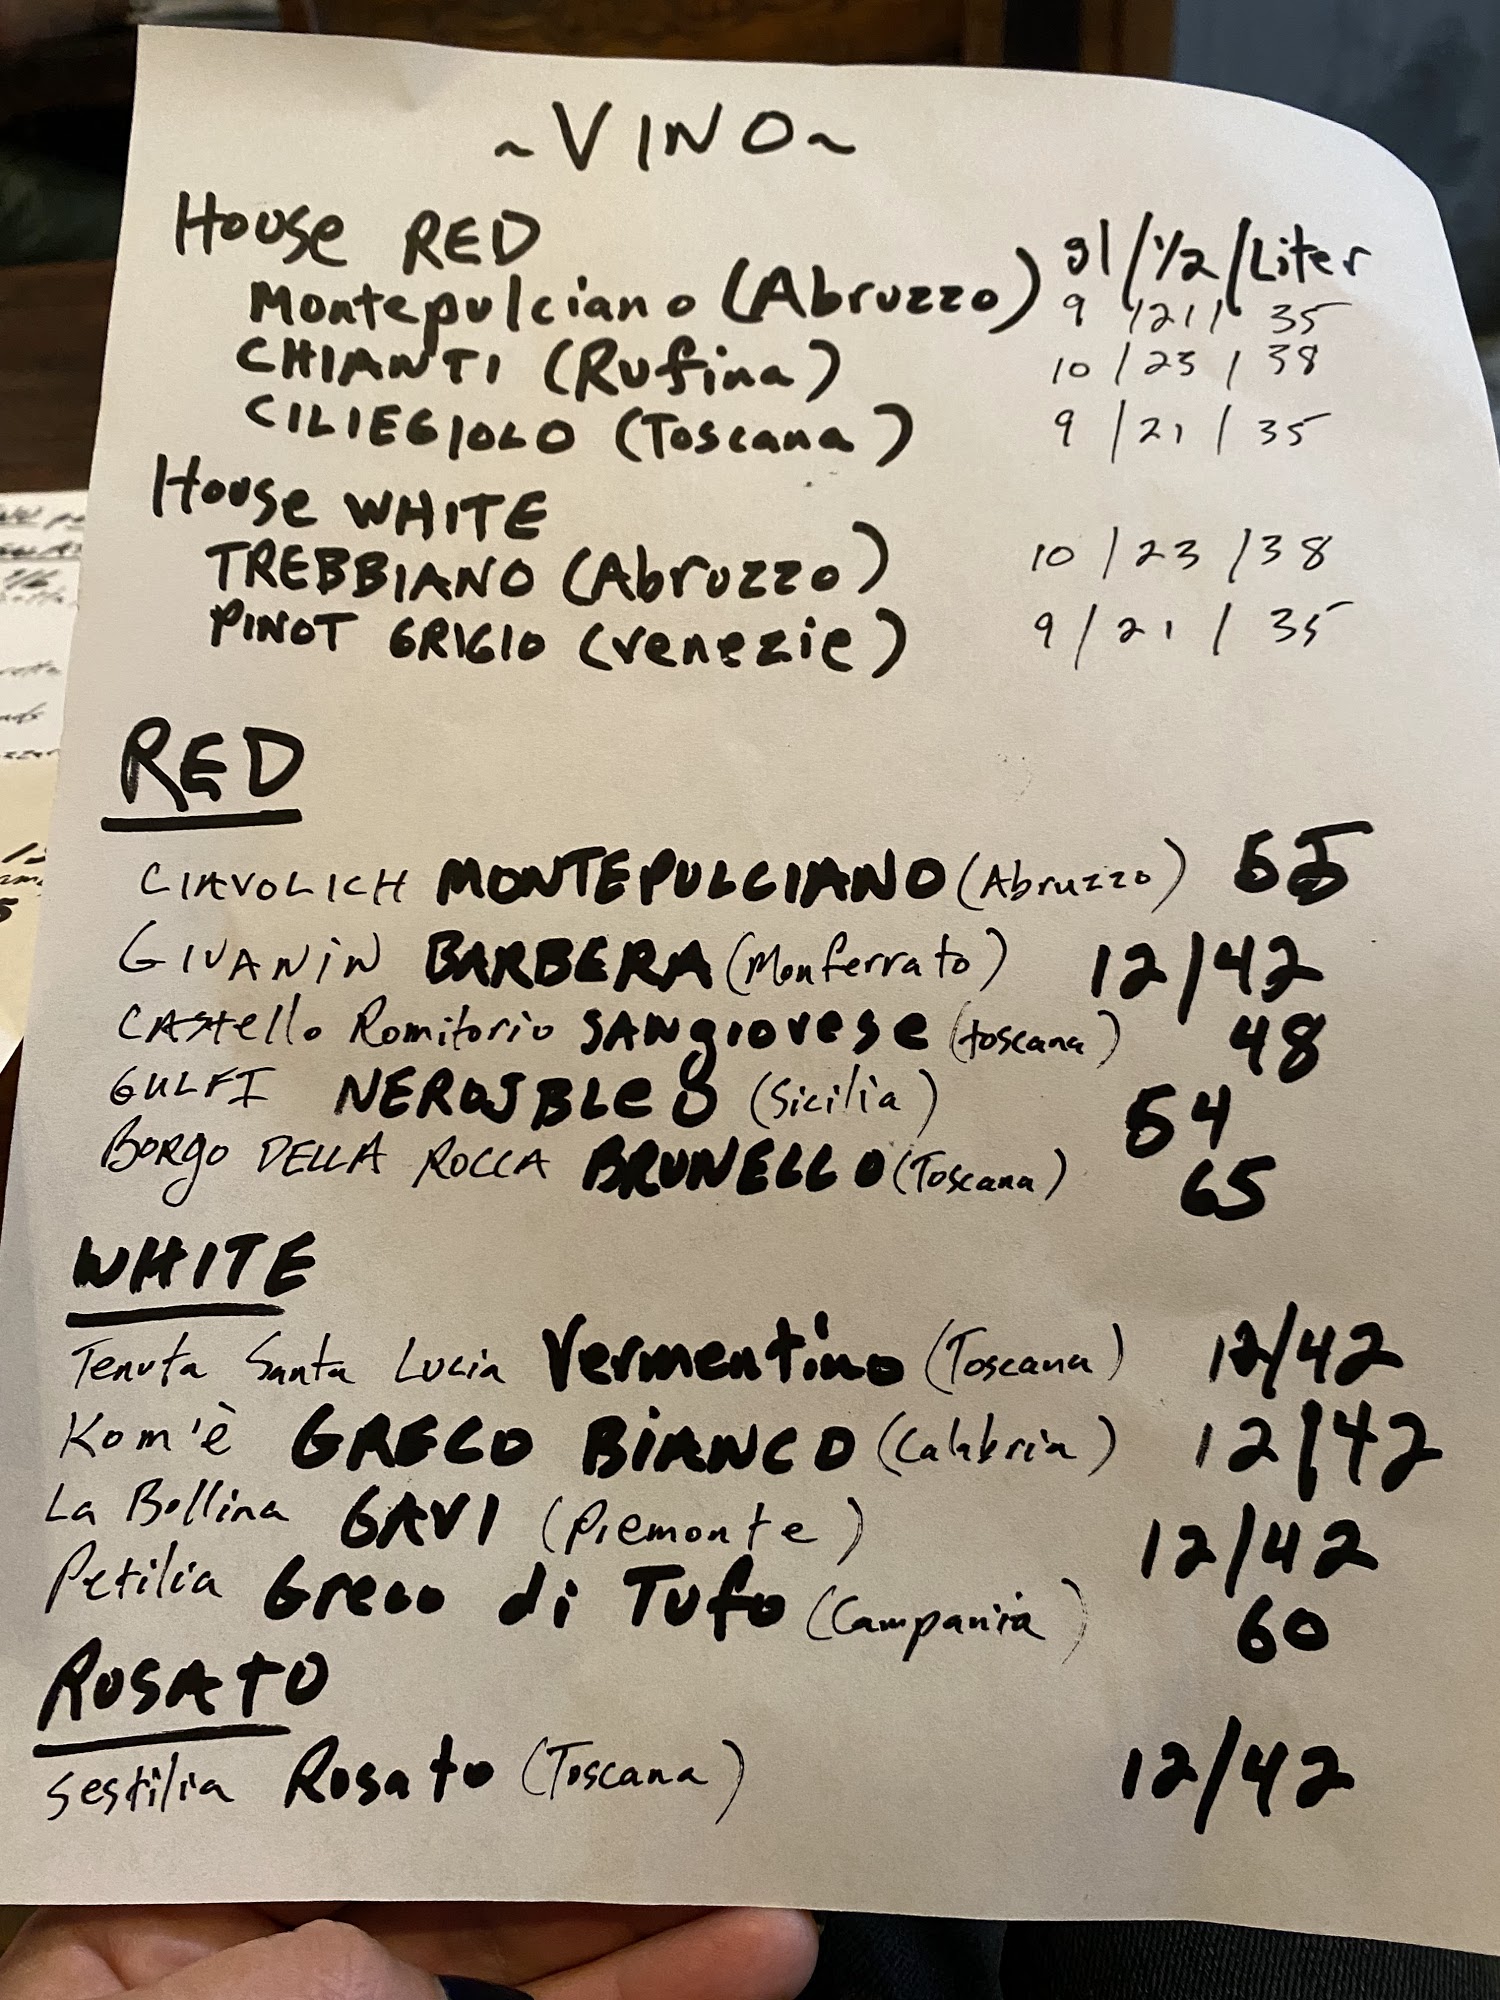 ~VINO~
House RED gl/½/Liter
Montepulciano (Abruzzo) 9/21/35
CHIANTI (Rufina) 10/23/38
CILIEGIOLO (Toscana) 9/21/35
House WHITE
TREBBIANO (Abruzzo) 10/23/38
PINOT GRIGIO (venezie) 9/21/35
RED
CIAVOLICH MONTEPULCIANO (Abruzzo) 55
GIVANIN BARBERA (Monferrato) 12/42
CAStello Romitorio SANgiovese (toscana) 48
GULFI (Sicilia) 54
BORgo DELLA ROCCA BRUNELLO (Toscana) 65
WHITE
Tenuta Santa Lucia Vermentino (Toscana) 12/42
Kom'è GRECO BiANCO (Calabria) 12/42
La Bollina GAVI (Piemonte) 12/42
Petilia Greco di Tufo (Campania) 60
ROSATO
sestilia Rosato (Toscana) 12/42